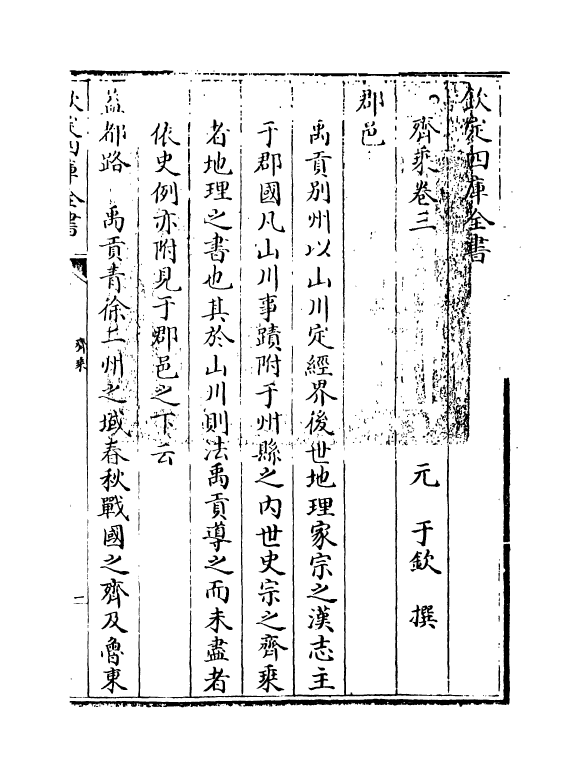 欽定四庫全書
齊乘卷三
元 于欽 撰
郡邑
禹貢別州以山川定經界後世地理家宗之漢志主
于郡國凡山川事蹟附于州縣之內世史宗之齊乘
者地理之書也其於山川則法禹貢導之而未盡者
依史例亦附見于郡邑之下云
益都路 禹貢青徐二州之域春秋戰國之齊及魯東
欽定四庫全書
齊乘